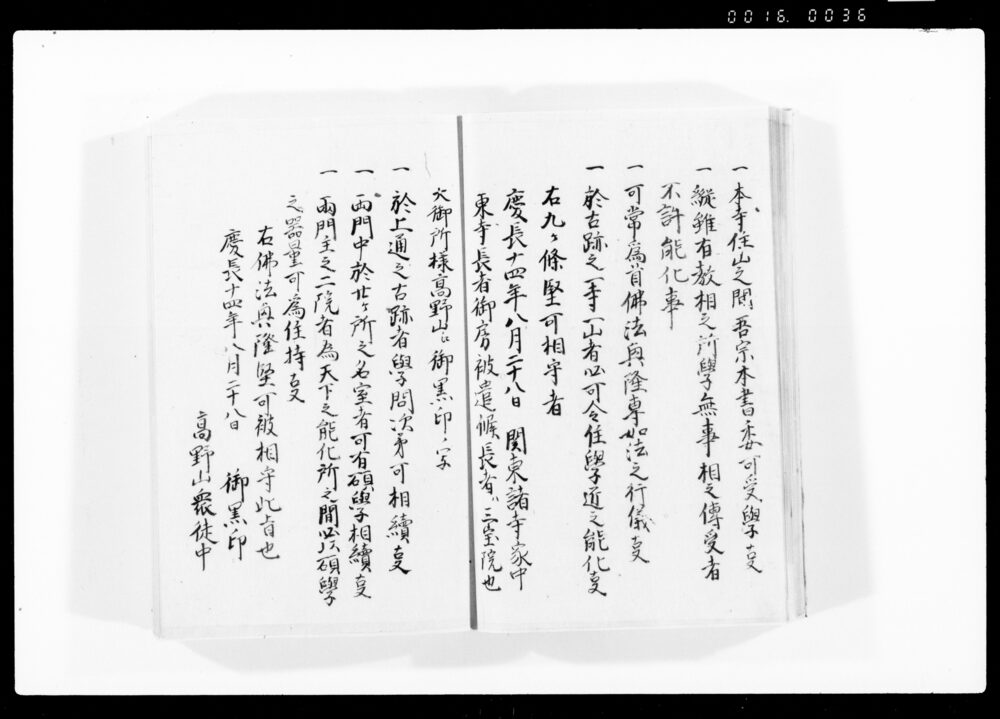 0016. 0036
一 本寺住山之間吾宗本書委可受學事
一 縦雖有教相之所學無事相之傳受者
不許能化事
一 可常爲首佛法興隆専如法之行儀事
一 於古跡之一寺一山者必可令住學道之能化事
右九ヶ條堅可相守者
慶長十四年八月二十八日 関東諸寺家中
東寺長者御房被遣候長者ハ三宝院也
大御所様高野山江御黒印之写
一 於上通之古跡者學問次第可相續事
一 両門中於廿ヶ所之名室者可有碩學相續事
一 兩門主之二院者為天下之能化所之間必以碩學
之器量可為住持事
右佛法興隆堅可被相守此旨也
慶長十四年八月二十八日 御黒印
高野山衆徒中